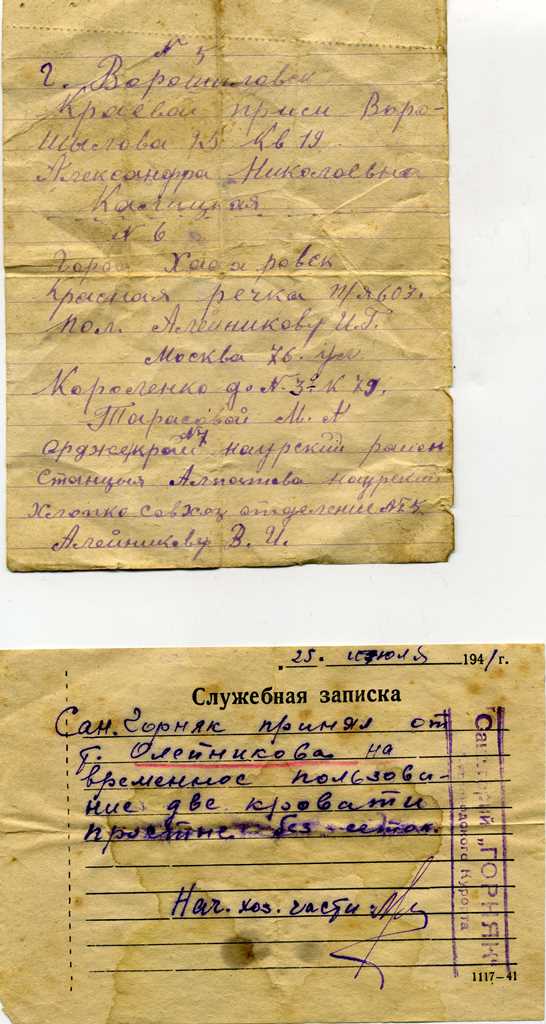 N 5
г. Ворошиловск
Краевой присп Воро-
шылова 25 Кв 19
Александра Николаевна
Калицкая
N 6
Город Хабаровск
Красная речка п/я 603.
пол. Алейникову И.Г.
Москва 76. ул
Короленко до N. К 79,
Тарасовой М. А
N7
Орджекрай наурский район
Станцыя Алпатово наурский
хлопко совхоз отделении №5
Алейникову В. И.
25. июля 1941 г.
Служебная записка
Сан. Горняк принял от
т. Олейникова на
временное пользова-
ние две кровати
простые без сеток.
Нач. хоз. части:
"ГОРНЯК"
Курорта
1117—41